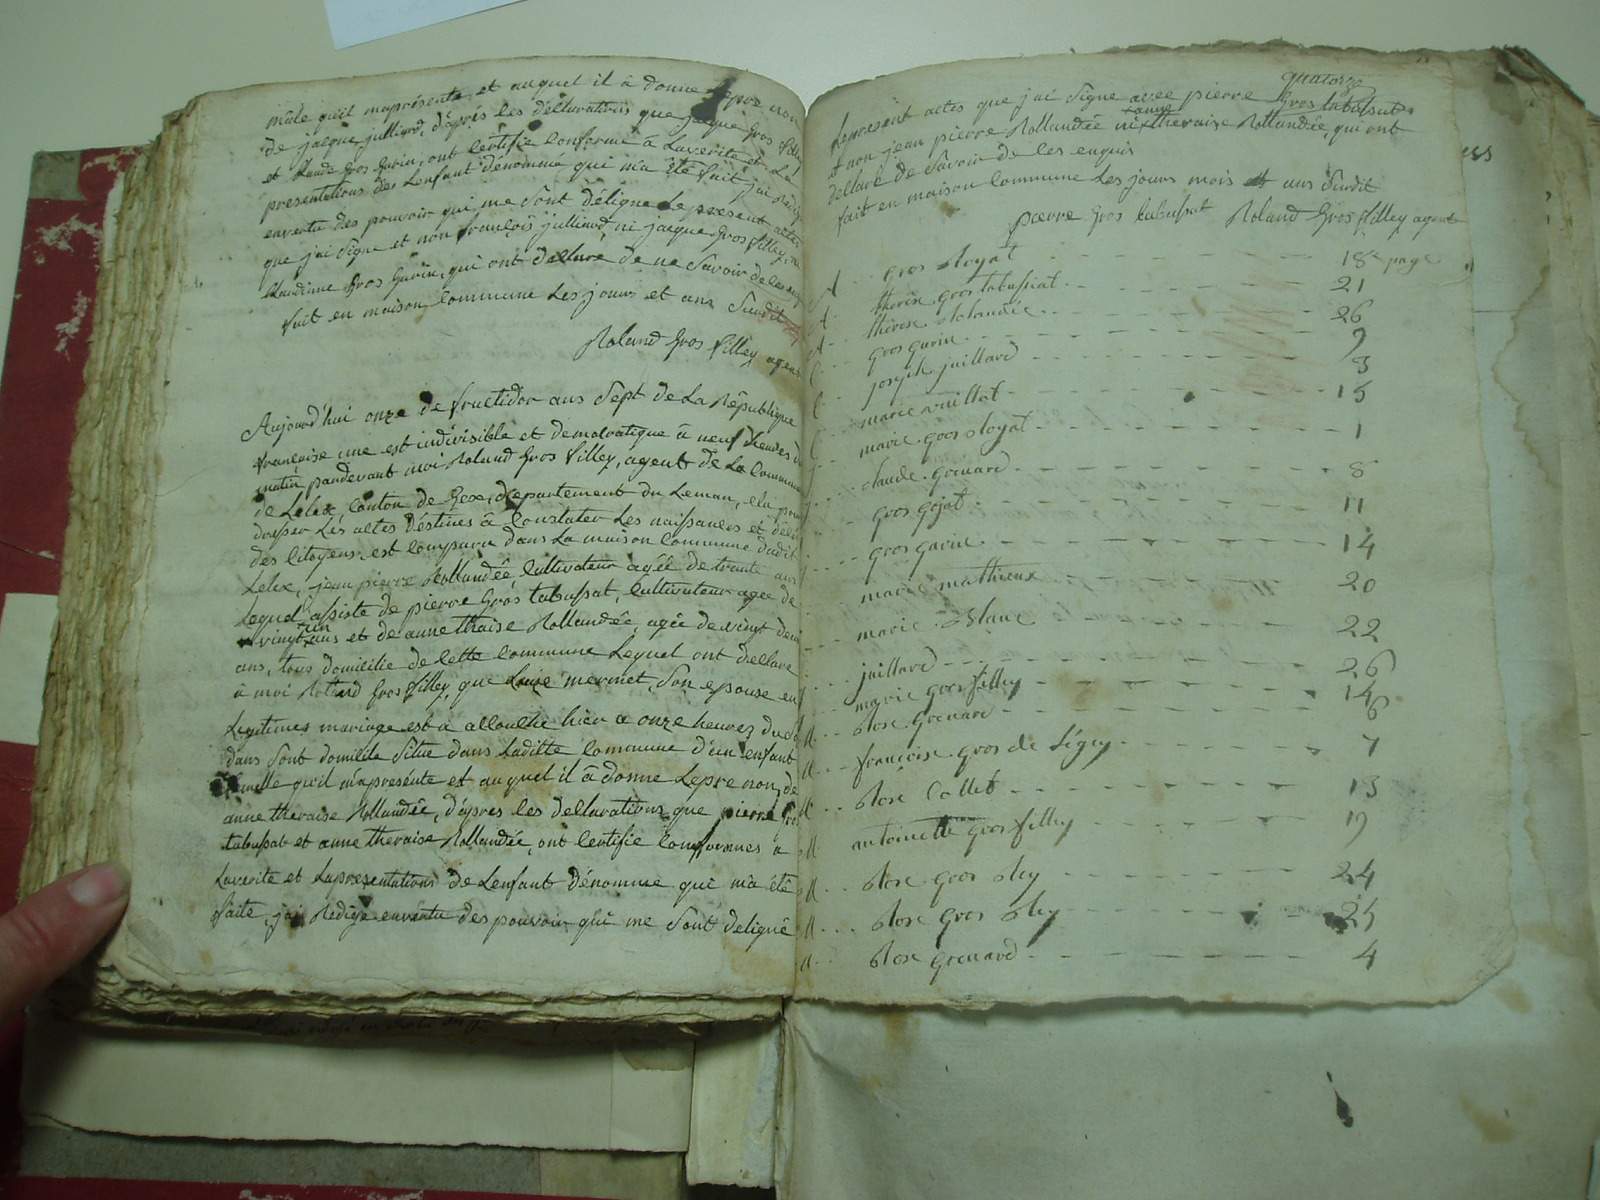 mâle qu'il m'aprésente et auquel il à donne lepre non
de jacque julliard, d'après les déllarations que jacque Gros filley
et Claude Gros Gurin, ont Certifie Conforme à Laverite et La
presentations de Lenfant dénommé qui m'a été fait j'ai Redige
envertu des pouvoir qui me Sont déligue Le present actes
que j'ai Signe et non françois julliard, ni jacque Gros filley, ni
Claudinne Gros Gurin, qui ont dellare de ne Savoir de les enquis
fait en maison Commune Les jours et ans Surdit
Roland Gros filley agent
Aujourd'hui onze de fructidor ans Sept de La République
françoise une est indivisible et democratique à neuf heures du
matin pardevant moi Roland Gros filley, agent de La Commune
de Lelex, Canton de Gex, département du Leman, elu pour
dresser Les actes déstines à Constater Les naissances et déces
des Citoyens est Comparu dans La maison Commune dudit
Lelex, jean pierre Rollandée, Cultivateur agée de trente ans
Lequel assiste de pierre Gros tabussat, Cultivateur agee de
vingt un ans et de anne theraise Rollandée, agée de vingt deux
ans, tous domicilie de Cette Commune Lequel ont dellare
à moi Rolland Gros filley, que Louise mermet, Son epouse en
Legitimes mariage est à accouche hier a onze heures du
dans Sont domicile Situe dans Laditte Commune d'un enfant
femelle qu'il m'apresénte et auquel il à donne Lepre non, de
anne theraise Rollandée, d'apres les dellarations que pierre Gros
tabussat et anne theraise Rollandée, ont Certifie Conformes à
Laverite et Lapresentations de Lenfant dénomme qui m'a été
faite, j'ai Redige envertu des pouvoir qui me Sont deligué
quatorze
Lepresent actes que j'ai Signe avec pierre Gros tabussat
et non jean pierre Rollandée ni anne theraise Rollandée, qui ont
déllare de Savoir de les enquis
fait en maison Commune Les jours mois et ans Surdit
pierre Gros tabussat Roland Gros filley agent
A gros Royat 18e page
A therese gros tabussat 21
A thérèse Rolandée 26
C gros gurin 9
C joseph juillard 3
C marie vuillat 15
marie gros Royat 1
claude grenard 8
gros gojat 11
gros gurin 14
marie mathieux 20
marie Blanc 22
juillard 26
marie gros filley 14
M Rose grenard 6
M françoise gros de Légny 7
M Rose Collet 13
M antoinette gros filley 19
M Rose gros Rey 24
M Rose gros Rey 25
M Rose grenard 4